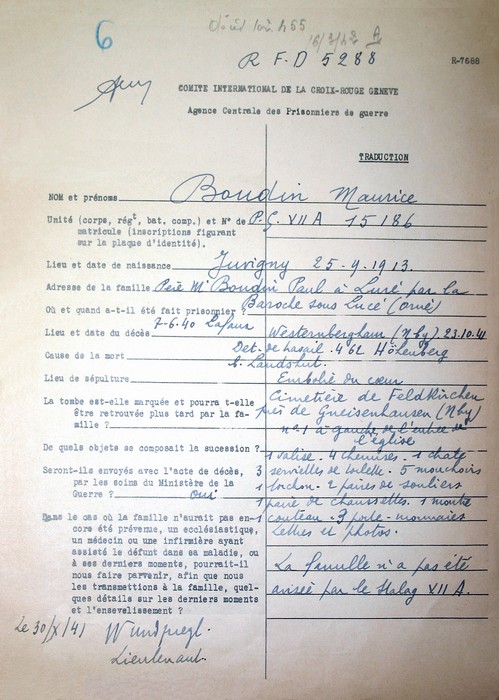 6
16/3/42 A
R F D 5288
R-7688
COMITE INTERNATIONAL DE LA CROIX-ROUGE GENEVE
Agence Centrale des Prisonniers de guerre
TRADUCTION
NOM et prénoms Boudin Maurice
Unité (corps, régt, bat. comp.) et N° de P.G. XII A 15186
matricule (inscriptions figurant
sur la plaque d'identité).
Lieu et date de naissance Juvigny 25-9-1913.
Adresse de la famille Père Mr Boudin Paul à Lucé par la
Baroche sous Lucé (Orne)
Où et quand a-t-il été fait prisonnier ?
7-6-40
Lieu et date du décès (Nby) 23.10.41
Det. de travail. 462 Höhenberg
Cause de la mort b. Landshut.
Lieu de sépulture Embolie du cœur
La tombe est-elle marquée et pourra t-elle Cimetière de Feldkirchen
être retrouvée plus tard par la fa- près de Gneisenhausen (Nby)
mille ? n° 1 à gauche de l'entrée de
l'église
De quels objets se composait la sucession ? 1 valise. 4 chemises. 1
Seront-ils envoyés avec l'acte de décès, 3 serviettes de toilette. 5 mouchoirs
par les soins du Ministère de la 1 torchon. 2 paires de souliers
Guerre ? oui 1 paire de chaussettes. 1 montre
Dans le cas où la famille n'aurait pas en- 1 couteau. 3 porte-monnaies
core été prévenue, un ecclésiastique, Lettres et photos.
un médecin ou une infirmière ayant
assisté le défunt dans sa maladie, ou
à ses derniers moments, pourrait-il La famille n'a pas été
nous faire parvenir, afin que nous
les transmettions à la famille, quel- avisée par le Stalag XII A.
ques détails sur les derniers moments
et l'ensevelissement ?
Le 30/X/41
Lieutenant.